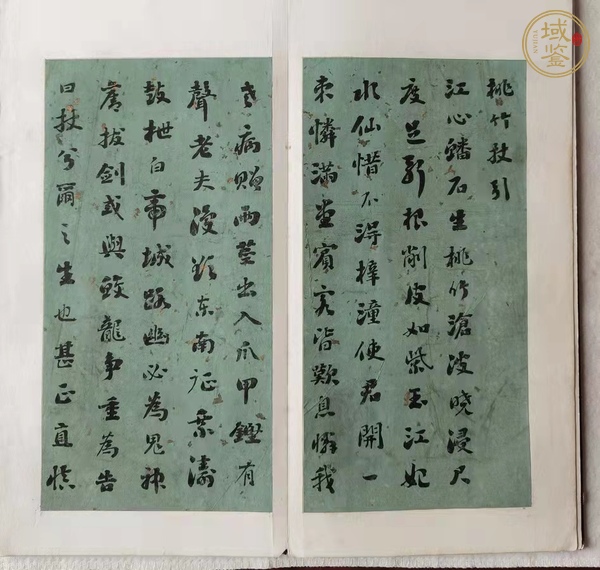 桃竹杖引
江心蟠石生桃竹滄波曉浸尺
度足斬根削皮如紫玉江妃
水仙惜不得梓潼使君開一
束憐滿堂賓客皆歎息憐我
老病贈兩莖出入爪甲鏗有
聲老夫復欲东南征乘濤
鼓枻白帝城路幽必為鬼神
奪拔劍或與蛟龍爭重為告
曰杖兮爾之生也甚正直慎
域鉴
YUJIAN